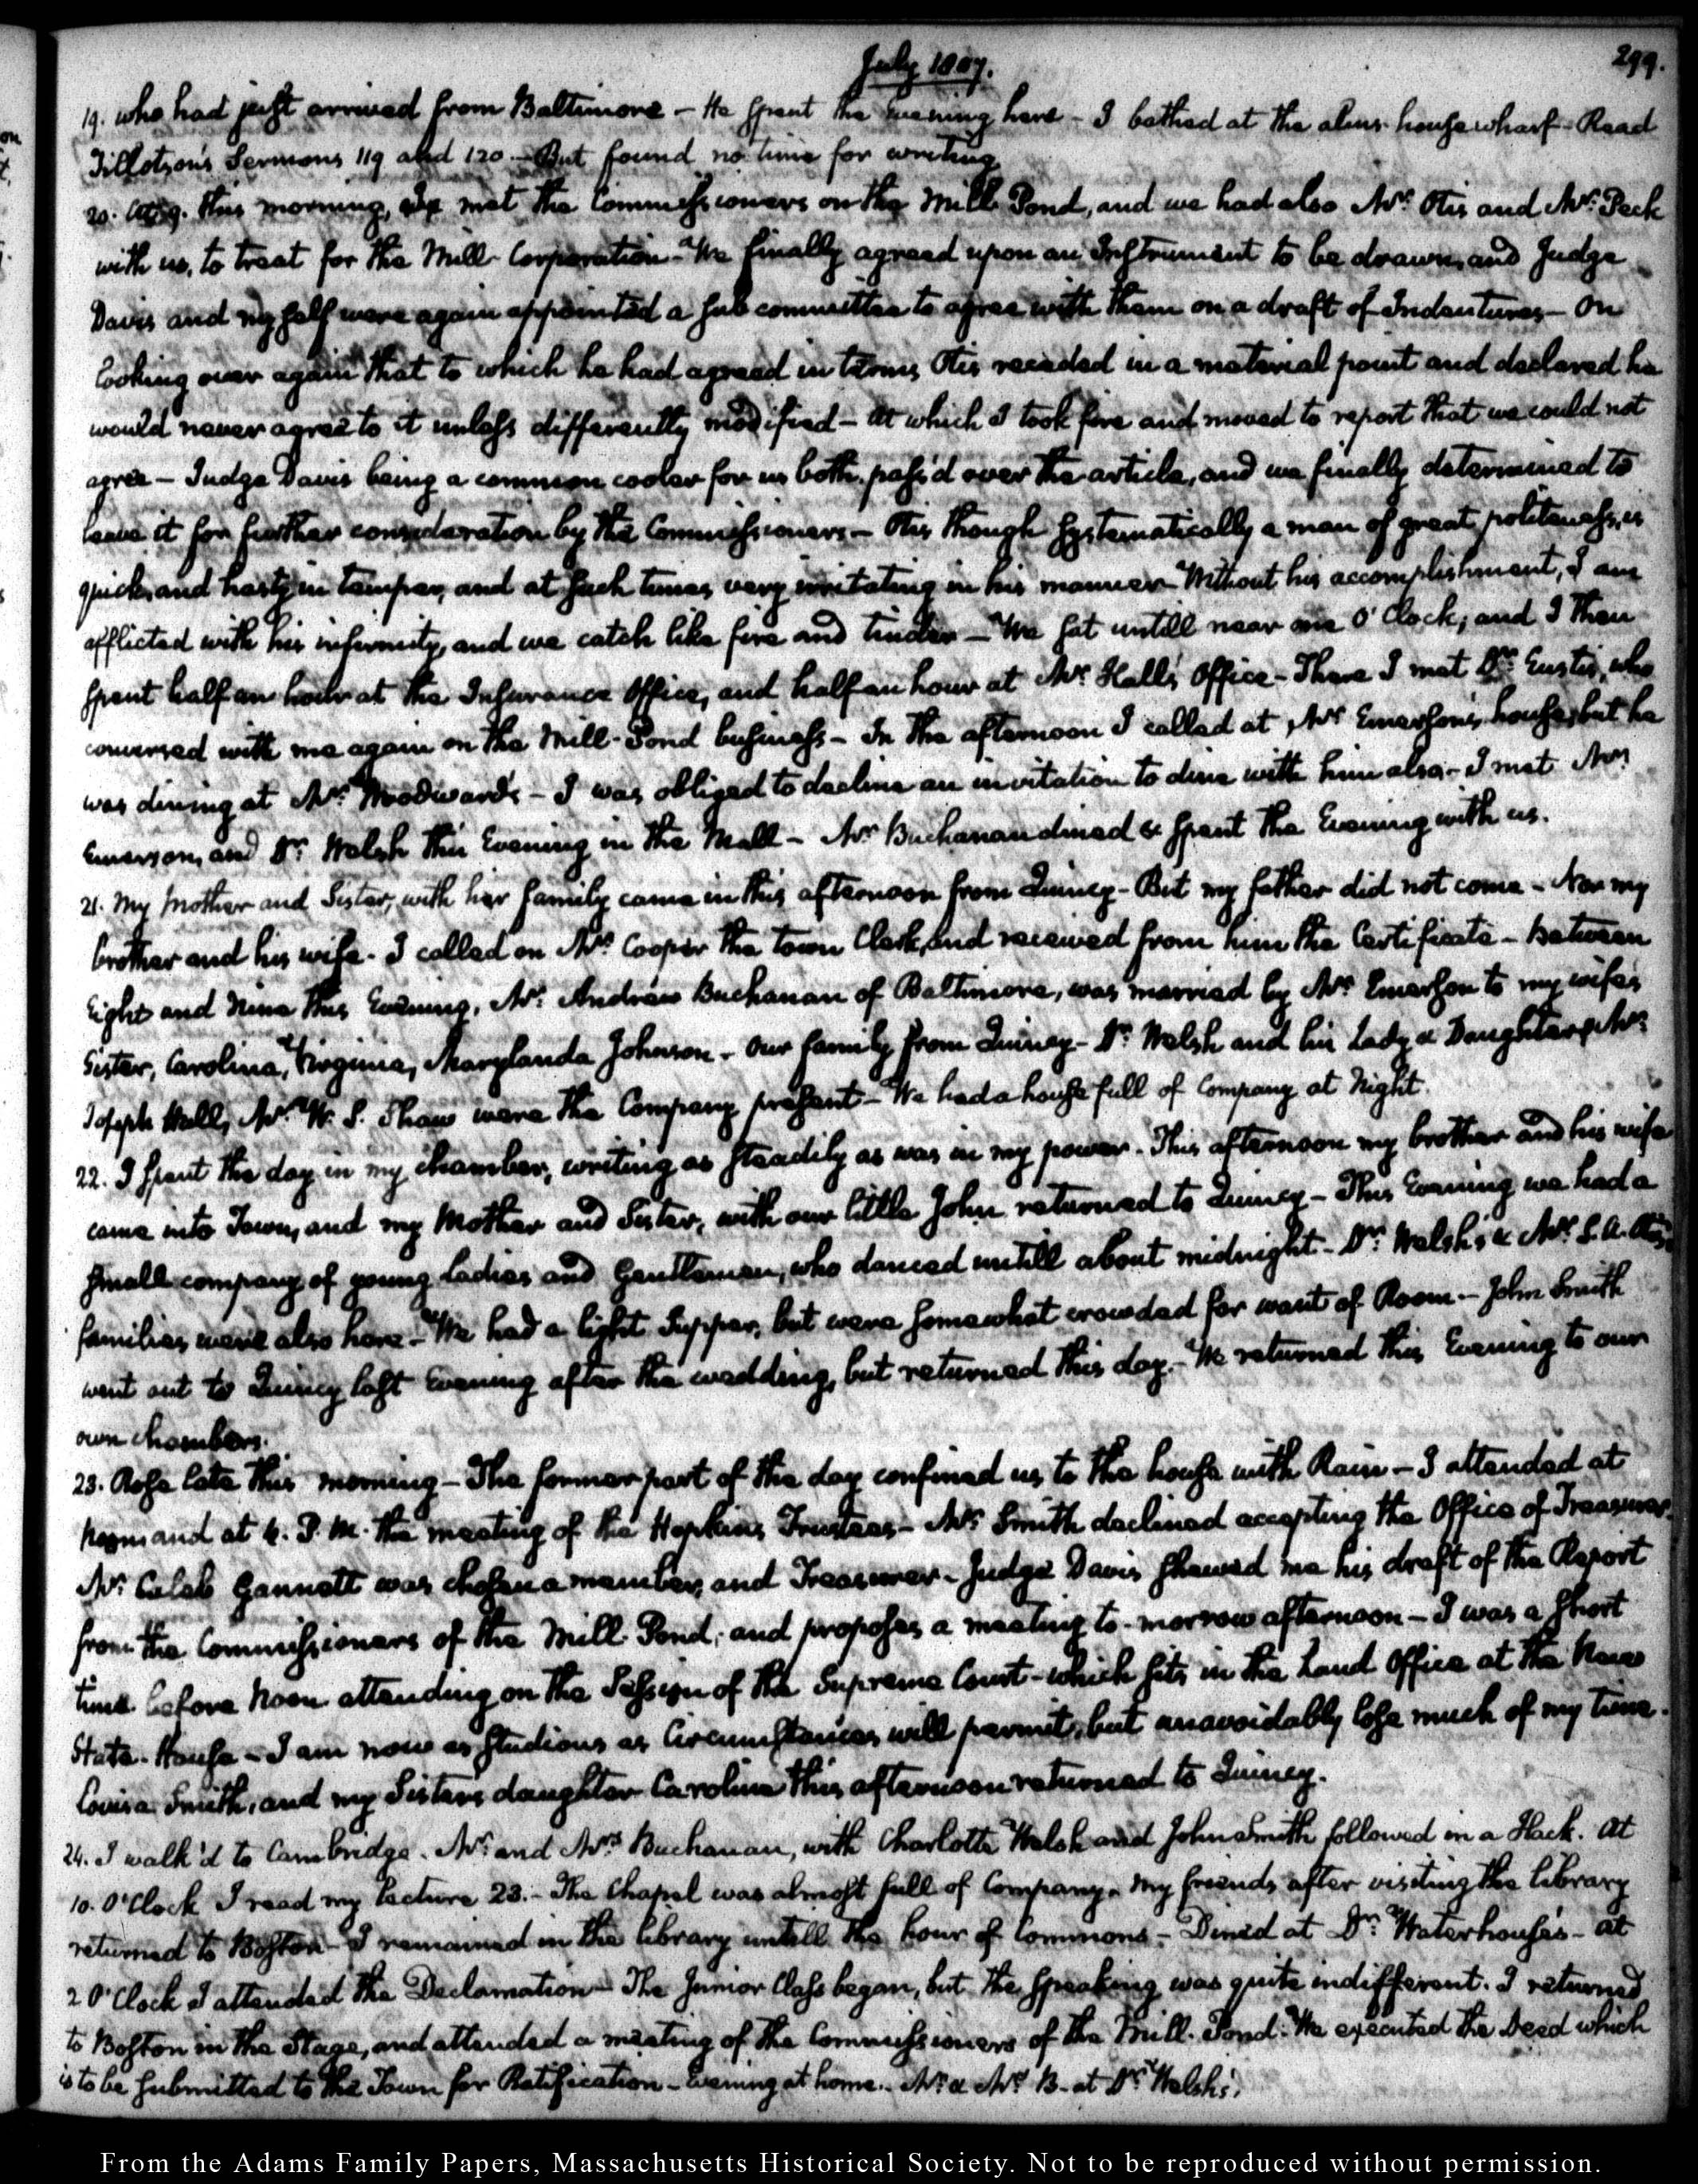 July 1807.
299.
19. who had just arrived from Baltimore – He spent the Evening here – I bathed at the alms-house wharf – Read
Tillotson's Sermons 119 and 120 – But found no time for writing.
20. At 9. this morning, We met the Commissioners on the Mill-Pond, and we had also Mr. Otis and Mr. Peck
with us, to treat for the Mill-Corporation – We finally agreed upon an Instrument to be drawn, and Judge
Davis and myself were again appointed a sub committee to agree with them on a draft of Indentures – On
looking over again that to which he had agreed in terms Otis receded in a material point and declared he
would never agree to it unless differently modified – At which I took fire and moved to report that we could not
agree – Judge Davis being a common cooler for us both, pass'd over the article, and we finally determined to
leave it for further consideration by the Commissioners – Otis though systematically a man of great politeness, is
quick, and hasty in temper, and at such times very irritating in his manner – Without his accomplishment, I am
afflicted with his infirmity, and we catch like fire and tinder – We sat untill near one O'Clock; and I then
spent half an hour at the Insurance Office, and half an hour at Mr. Hall's Office – There I met Dr. Eustis, who
conversed with me again on the Mill-Pond business – In the afternoon I called at Mr. Emerson's house, but he
was dining at Mr. Woodward's – I was obliged to decline an invitation to dine with him also – I met Mr.
Emerson, and Dr. Welsh this Evening in the Mall – Mr. Buchanan dined & spent the Evening with us.
21. My Mother and Sister, with her family came in this afternoon from Quincy – But my father did not come – Nor my
brother and his wife. I called on Mr. Cooper the town Clerk, and received from him the Certificate – Between
Eight and Nine this Evening, Mr. Andrew Buchanan of Baltimore, was married by Mr. Emerson to my wife's
Sister, Carolina, Virginia, Marylanda Johnson – Our family from Quincy – Dr. Welsh and his Lady & Daughter, Mr.
Joseph Hall, Mr. W. S. Shaw were the Company present – We had a house full of Company at Night.
22. I spent the day in my chamber, writing as steadily as was in my power. This afternoon my brother and his wife
came into Town, and my Mother and Sister, with our little John returned to Quincy – This Evening we had a
small company of young Ladies and Gentlemen, who danced untill about midnight – Dr. Welsh's & Mr. S. A. Otis's
families were also here – We had a light Supper, but were somewhat crowded for want of Room – John Smith
went out to Quincy last Evening after the wedding, but returned this day – We returned this Evening to our
own chambers.
23. Rose late this morning – The former part of the day confined us to the house with Rain – I attended at
Noon and at 4. P.M. the meeting of the Hopkins Trustees – Mr. Smith declined accepting the Office of Treasurer.
Mr. Caleb Gannett was chosen a member, and Treasurer – Judge Davis shewed me his draft of the Report
from the Commissioners of the Mill-Pond; and proposes a meeting to-morrow afternoon – I was a short
time before Noon attending on the Session of the Supreme Court – which sits in the Land Office at the New
State-House – I am now as studious as Circumstances will permit, but unavoidably lose much of my time.
Louisa Smith, and my Sisters daughter Caroline this afternoon returned to Quincy.
24. I walk'd to Cambridge. Mr. and Mrs. Buchanan, with Charlotte Welsh and John Smith followed in a Hack. At
10. O'Clock I read my Lecture 23. – The Chapel was almost full of Company. My friends after visiting the library
returned to Boston – I remained in the library untill the hour of Commons – Dined at Dr. Waterhouse's – At
2 O'Clock I attended the Declamation – The Junior Class began, but the speaking was quite indifferent. I returned
to Boston in the Stage, and attended a meeting of the Commissioners of the Mill-Pond. We executed the Deed which
is to be submitted to the Town for Ratification – Evening at home. Mr. & Mrs. B. at Dr. Welsh's.
From the Adams Family Papers, Massachusetts Historical Society. Not to be reproduced without permission.